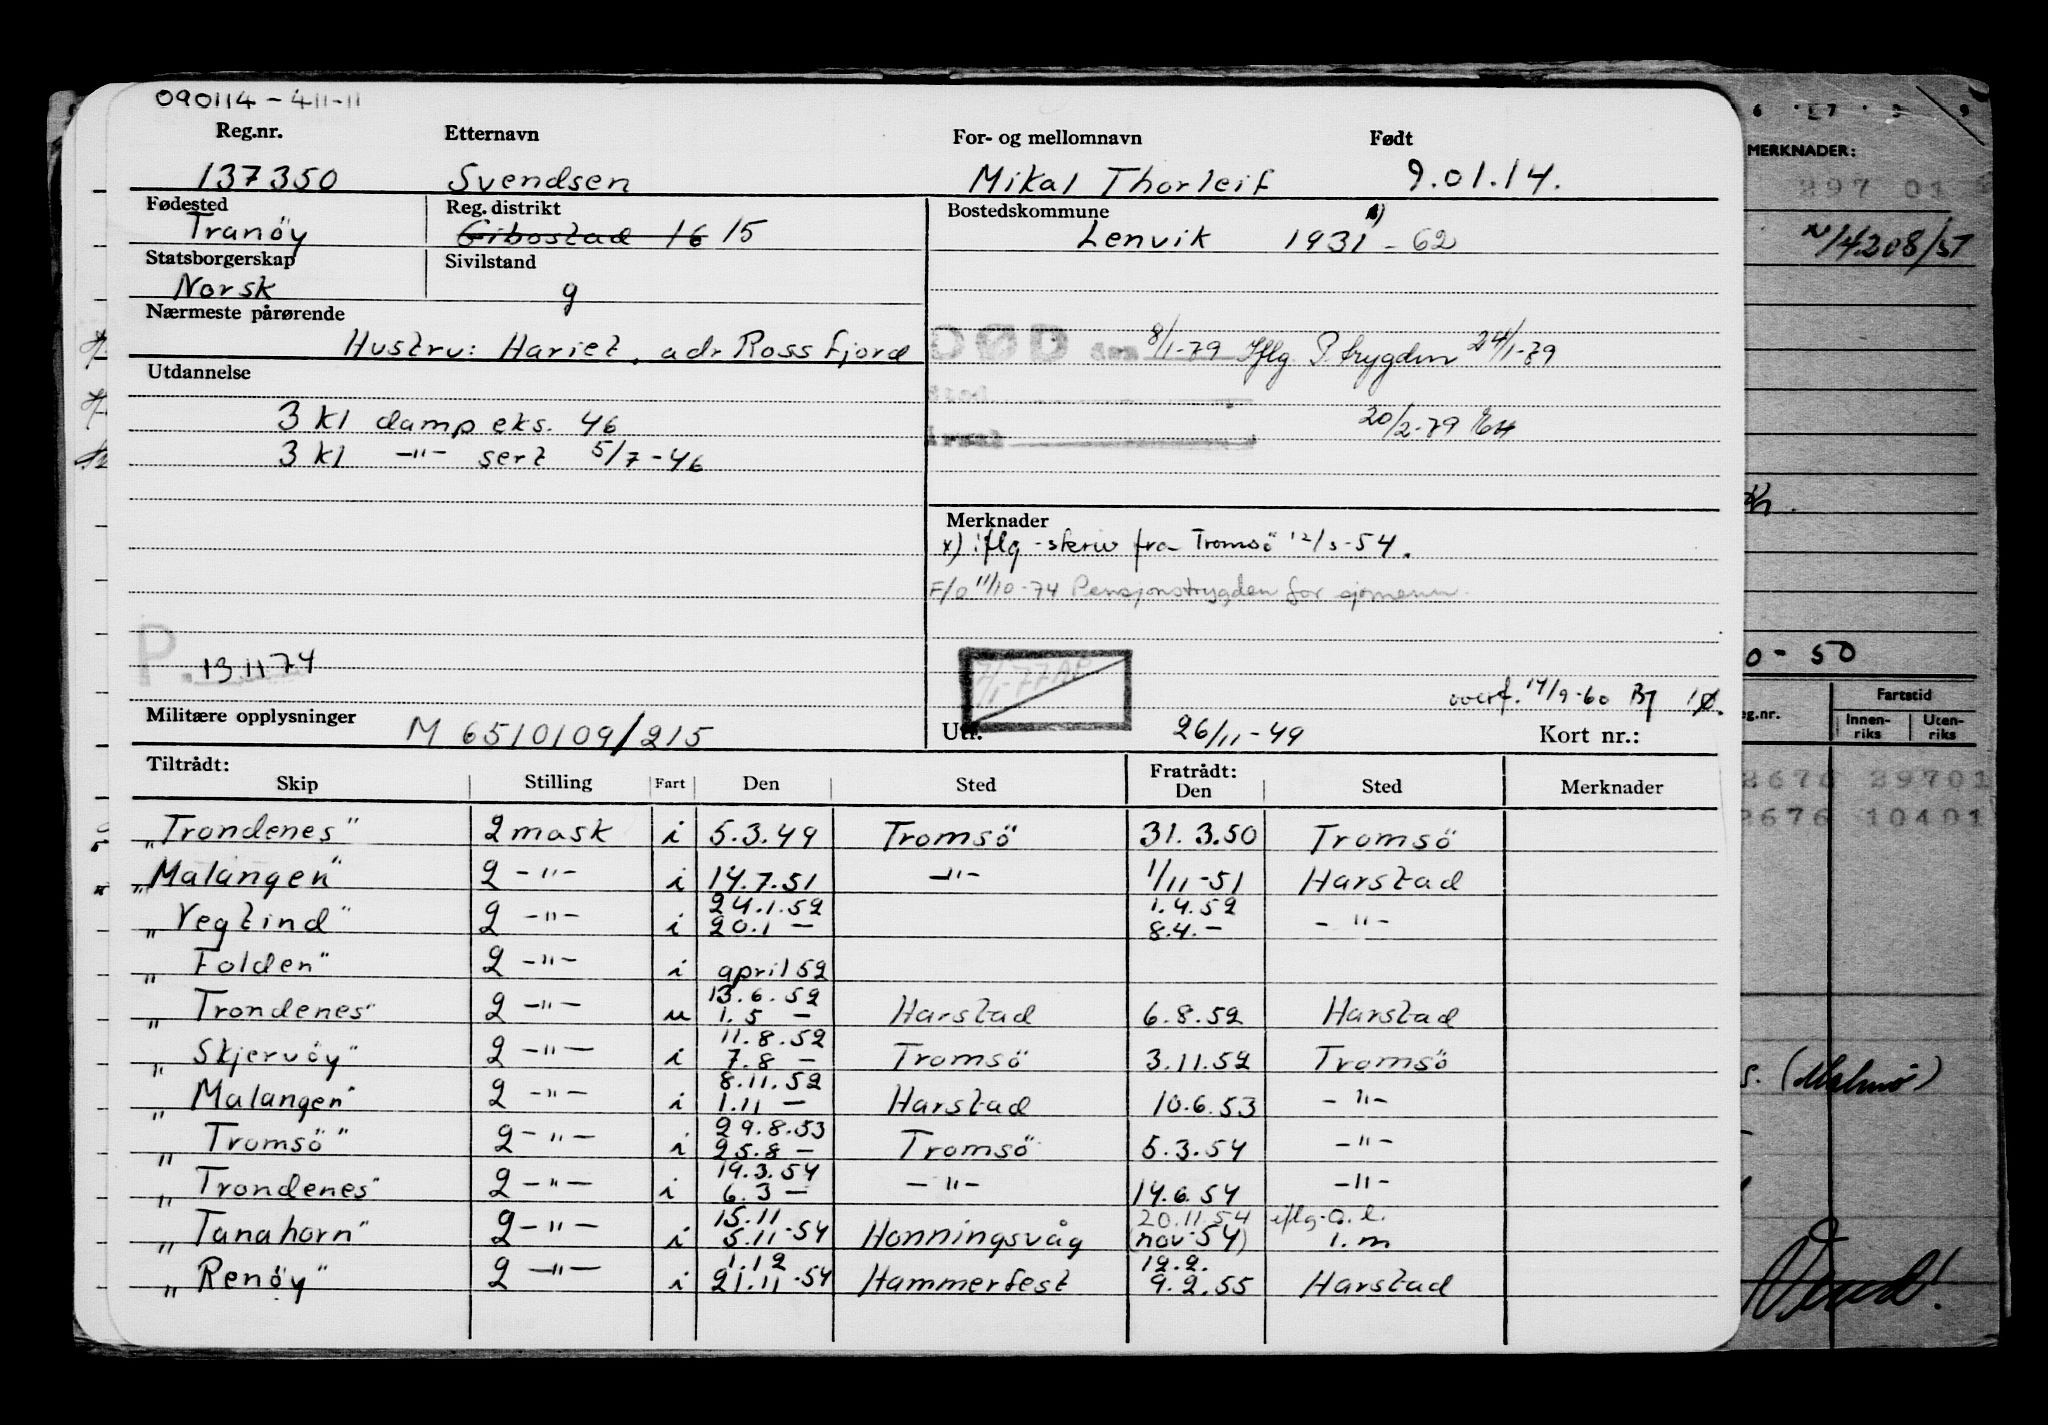 090114 - 411-11
Reg.nr. Etternavn For- og mellomnavn Født
137350 Svendsen Mikal Thorleif 9.01.14.
Fødested Reg. distrikt Bostedskommune
Tranöy Gibostad 16 15 Lenvik 1931 - 62
Statsborgerskap Sivilstand
Norsk g
Nærmeste pårørende
Hustru: Hariet, adr Rossfjord
DØD 8/1-79 Iflg. P.trygden 24/1-79
Utdannelse
3 kl damp eks. 46 20/2-79
3 kl -"- sert 5/7-46
Merknader
x) iflg - skriv fra Tromsö 12/3-54.
F/o 11/10-74 Pensjonstrygden for sjömenn
P. 13 11 74
overf. 14/9-60
Militære opplysninger M 6510109/215 Utf. 26/11-49 Kort nr.:
Tiltrådt: Fratrådt:
Skip Stilling Fart Den Sted Den Sted Merknader
„Trondenes" 2 mask i 5.3.49 Tromsö 31.3.50 Tromsö
„Malangen" 2 -"- i 14.7.51 -"- 1/11-51 Harstad
24.1.52 1.4.52
„Vegtind" 2 -"- i 20.1 - 8.4.- -"-
„Folden" 2 -"- i april 52
13.6.52
„Trondenes" 2 -"- u 1.5 - Harstad 6.8.52 Harstad
11.8.52
„Skjervöy" 2 -"- i 7.8 - Tromsö 3.11.52 Tromsö
8.11.52
„Malangen" 2 -"- i 1.11 - Harstad 10.6.53 -"-
29.8.53
„Tromsö" 2 -"- i 25.8 - Tromsö 5.3.54 -"-
19.3.54
„Trondenes" 2 -"- i 6.3 - -"- 14.6.54 -"-
15.11 20.11.54 iflg. a.l.
„Tanahorn" 2 -"- i 5.11-54 Honningsvåg (nov-54) i.m
1.12 12.2.
„Renöy" 2 -"- i 21.11-54 Hammerfest 9.2.55 Harstad
MERKNADER:
397 01
14208/51
0 - 50
eg.nr. Fartstid
Innen-riks Uten-riks
3676 39701
3676 10401
s. (Malmö)